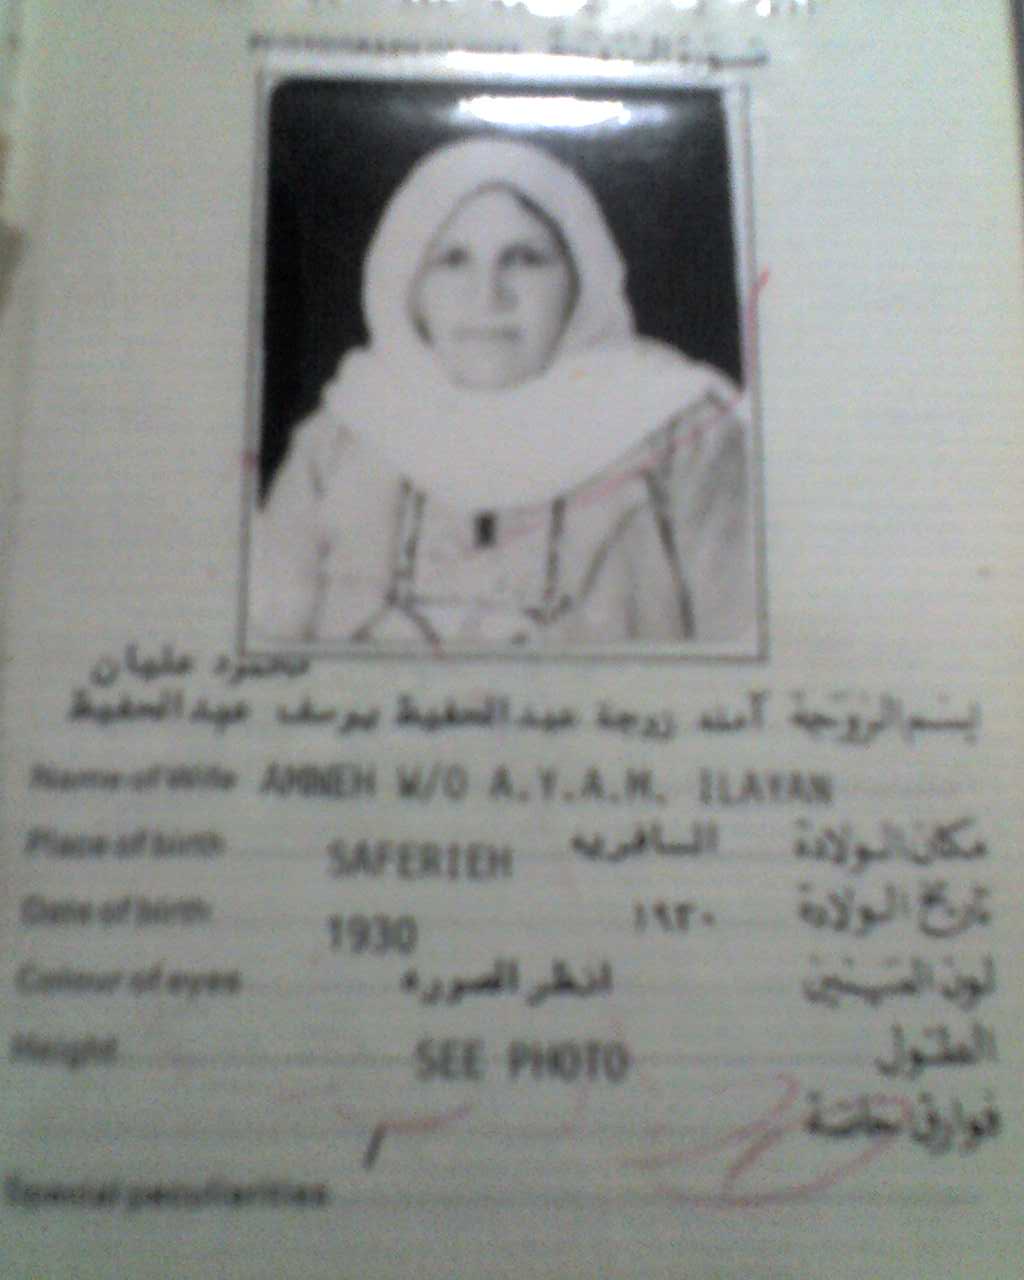 صورة الزوجة
محمود عليان
إسم الزوجة آمنه زوجة عبد الحفيظ يوسف عبد الحفيظ
Name of Wife AMNEH W/O A.Y.A.M. ILAYAN
Place of birth SAFERIEH السافريه مكان الولادة
Date of birth 1930 ١٩٣٠ تاريخ الولادة
Colour of eyes انظر الصوره لون العينين
Height SEE PHOTO الطول
فوارق خاصة
Special peculiarities